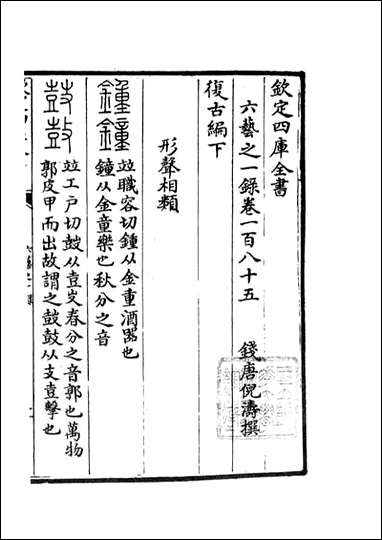 欽定四庫全書
六藝之一錄卷一百八十五
錢唐倪濤撰
復古編下
形聲相類
鍾鐘
竝職容切鍾从金重酒器也
鐘从金童樂也秋分之音
鼓鼔
竝工戶切鼓从壴支春分之音郭也萬物
郭皮甲而出故謂之鼓鼔从攴壴擊也